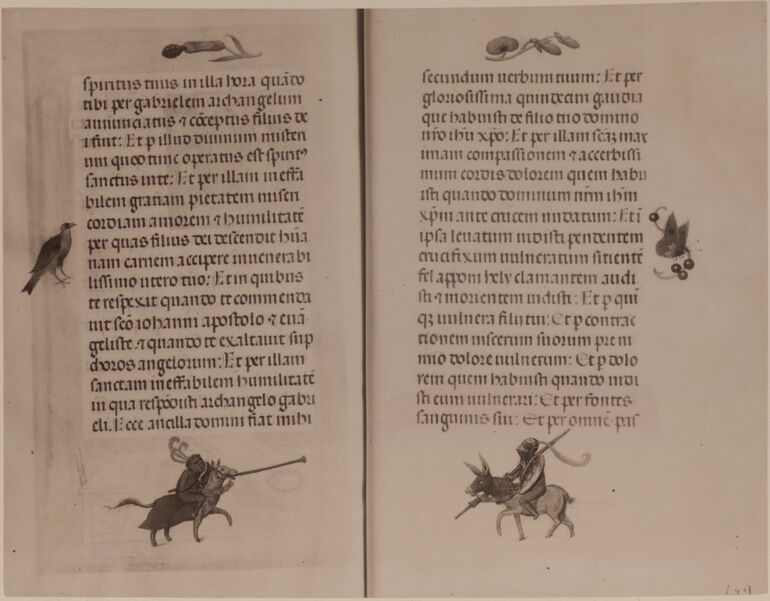 spiritus tuus in illa hora quādo
tibi per gabrielem archangelum
annunciatus ⁊ cōceptus filius de
i fuit: Et p illud diuinum misteri
um quod tunc operatus est spiritꝰ
sanctus in te: Et per illam in effa
bilem gratiam pietatem miseri
cordiam amorem ⁊ humilitatē
per quas filius dei descendit hūa
nam carnem accipere in uenerabi
lissimo utero tuo: Et in quibus
te respexit quando te commenda
uit scō iohanni apostolo ⁊ euā
geliste ⁊ quando te exaltauit sup
choros angelorum: Et per illam
sanctam in effabilem humilitatē
in qua respōdisti archangelo gabri
eli. Ecce ancilla domini fiat mihi
secundum uerbum tuum: Et per
gloriosissima quindecim gaudia
que habuisti de filio tuo domino
nr̄o ihū xp̄o: Et per illam scāz max
imam compassionem ⁊ accerbissi
mum cordis dolorem quem habu
isti quando dominum nr̄m ihm̄
xp̄m ante crucem nudatum: Et ī
ipsa leuatum uidisti pendentem
crucifixum uulneratum sitientē
fel apponi hely clamantem audi
sti ⁊ morientem uidisti: Et p qui
qꝫ uulnera filii tui: Et p contrac
tionem uiscerum suorum pre ni
mio dolore uulnerum: Et p dolo
rem quem habuisti quando uidi
sti eum uulnerari: Et per fontes
sanguinis sui: Et per omnē pas